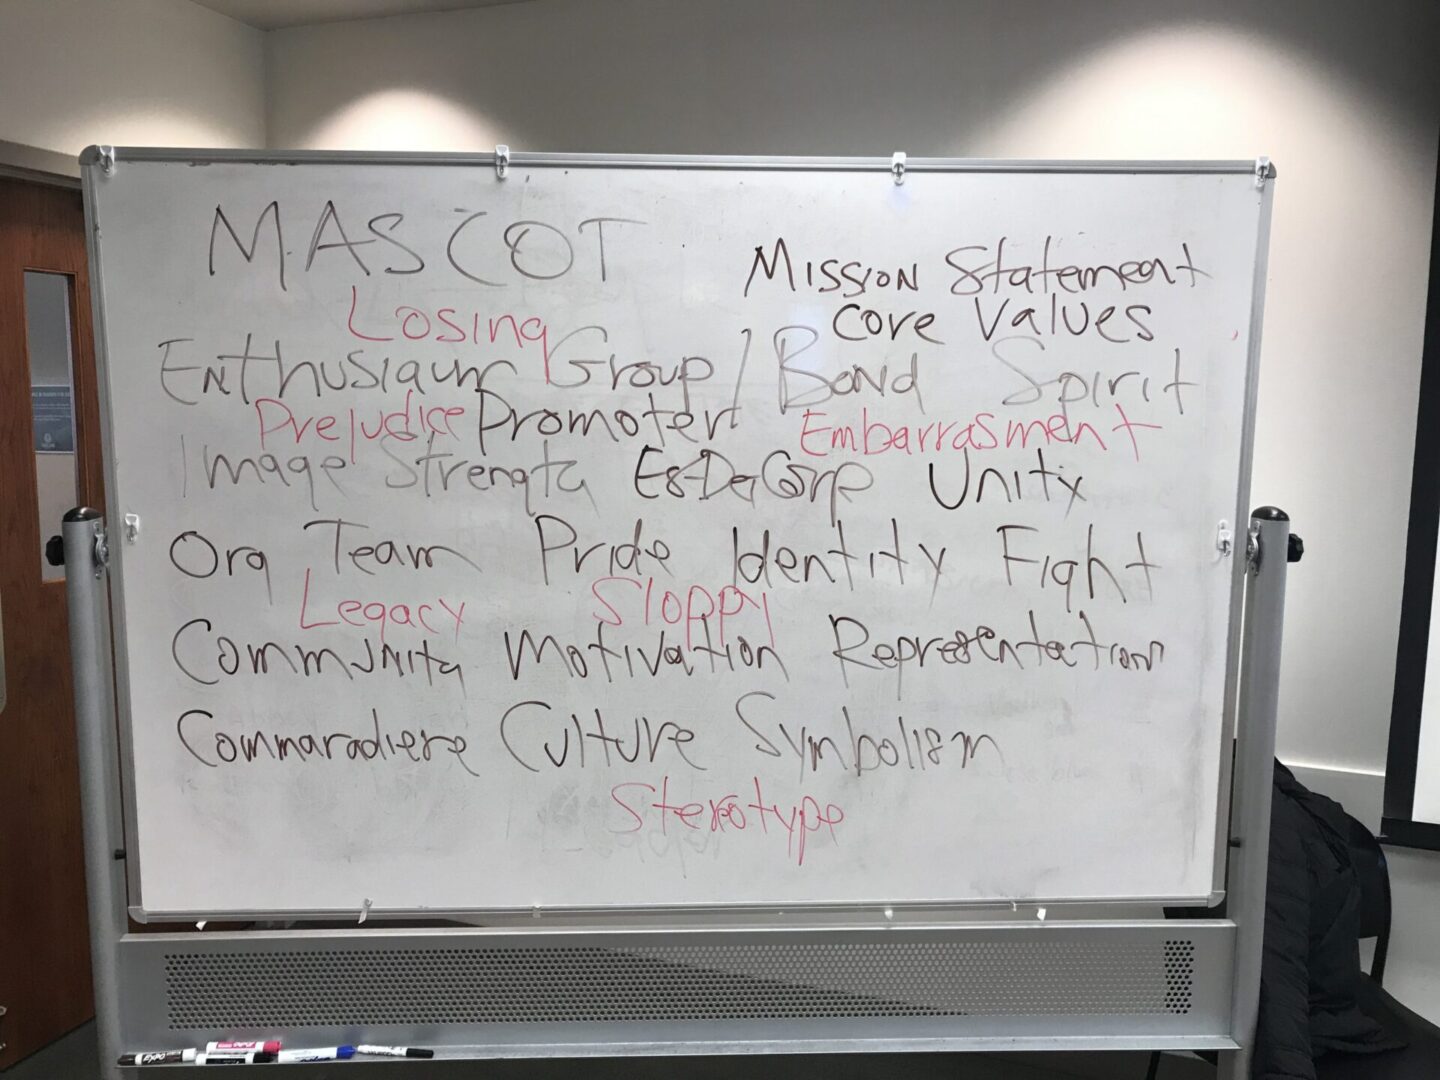 MASCOT
Mission Statement
Core Values
Losing
Enthusiaum Group / Bond Spirit
Prejudice Promoter Embarrasment
Image Strength Es-De-Corp Unity
Org Team Pride Identity Fight
Legacy Sloppy
Community Motivation Representation
Commaradiere Culture Symbolism
Stereotype